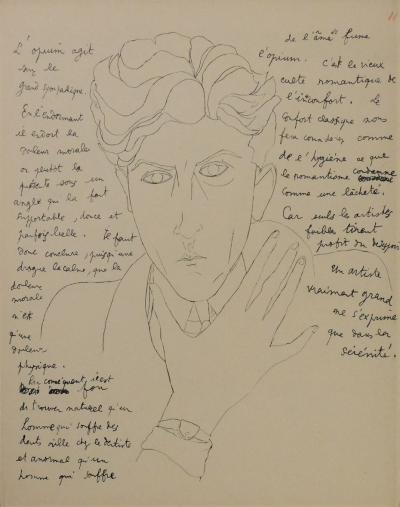 L'opium agit
sur le
grand sympathique.
En l'endormant
il endort la
douleur morale
ou plutôt la
présente sous un
angle qui la fait
supportable, douce et
parfois belle. Il faut
donc conclure, puisqu'une
drogue la calme, que la
douleur
morale
n'est
qu'une
douleur
physique.
Par conséquent il est
fou
de trouver naturel qu'un
homme qui souffre des
dents aille chez le dentiste
et anormal qu'un
homme qui souffre
de l'"âme" fume
l'opium. C'est le vieux
culte romantique de
l'inconfort. Le
confort classique nous
fera considérer comme
de l'hygiène ce que
le romantisme condamne
comme une lâcheté.
Car seuls les artistes
faibles tirent
profit du
Un artiste
vraiment grand
ne s'exprime
que dans la
sérénité.